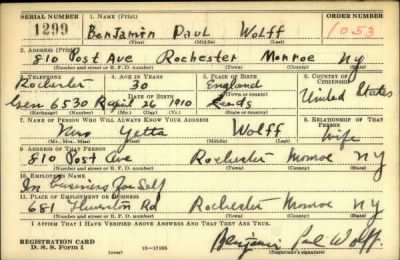 SERIAL NUMBER 1. NAME (Print) ORDER NUMBER
1299 Benjamin Paul Wolff 1053
(First) (Middle) (Last)
2. ADDRESS (Print)
810 Post Ave Rochester Monroe NY
(Number and street or R. F. D. number) (Town) (County) (State)
3. TELEPHONE 4. AGE IN YEARS 5. PLACE OF BIRTH 6. COUNTRY OF CITIZENSHIP
Rochester 30 England
DATE OF BIRTH (Town or county)
Gen 6530 April 26 1910 Leeds United States
7. NAME OF PERSON WHO WILL ALWAYS KNOW YOUR ADDRESS 8. RELATIONSHIP OF THAT PERSON
Mrs Yetta Wolff wife
(Mr., Mrs., Miss) (First) (Middle) (Last)
9. ADDRESS OF THAT PERSON
810 Post Ave Rochester Monroe NY
(Number and street or R. F. D. number) (Town) (County) (State)
10. EMPLOYER'S NAME
In business for Self
11. PLACE OF EMPLOYMENT OR BUSINESS
681 Thurston Rd Rochester Monroe NY
(Number and street or R. F. D. number) (Town) (County) (State)
I AFFIRM THAT I HAVE VERIFIED ABOVE ANSWERS AND THAT THEY ARE TRUE.
REGISTRATION CARD
D. S. S. Form 1 Benjamin Paul Wolff
(Registrant's signature)